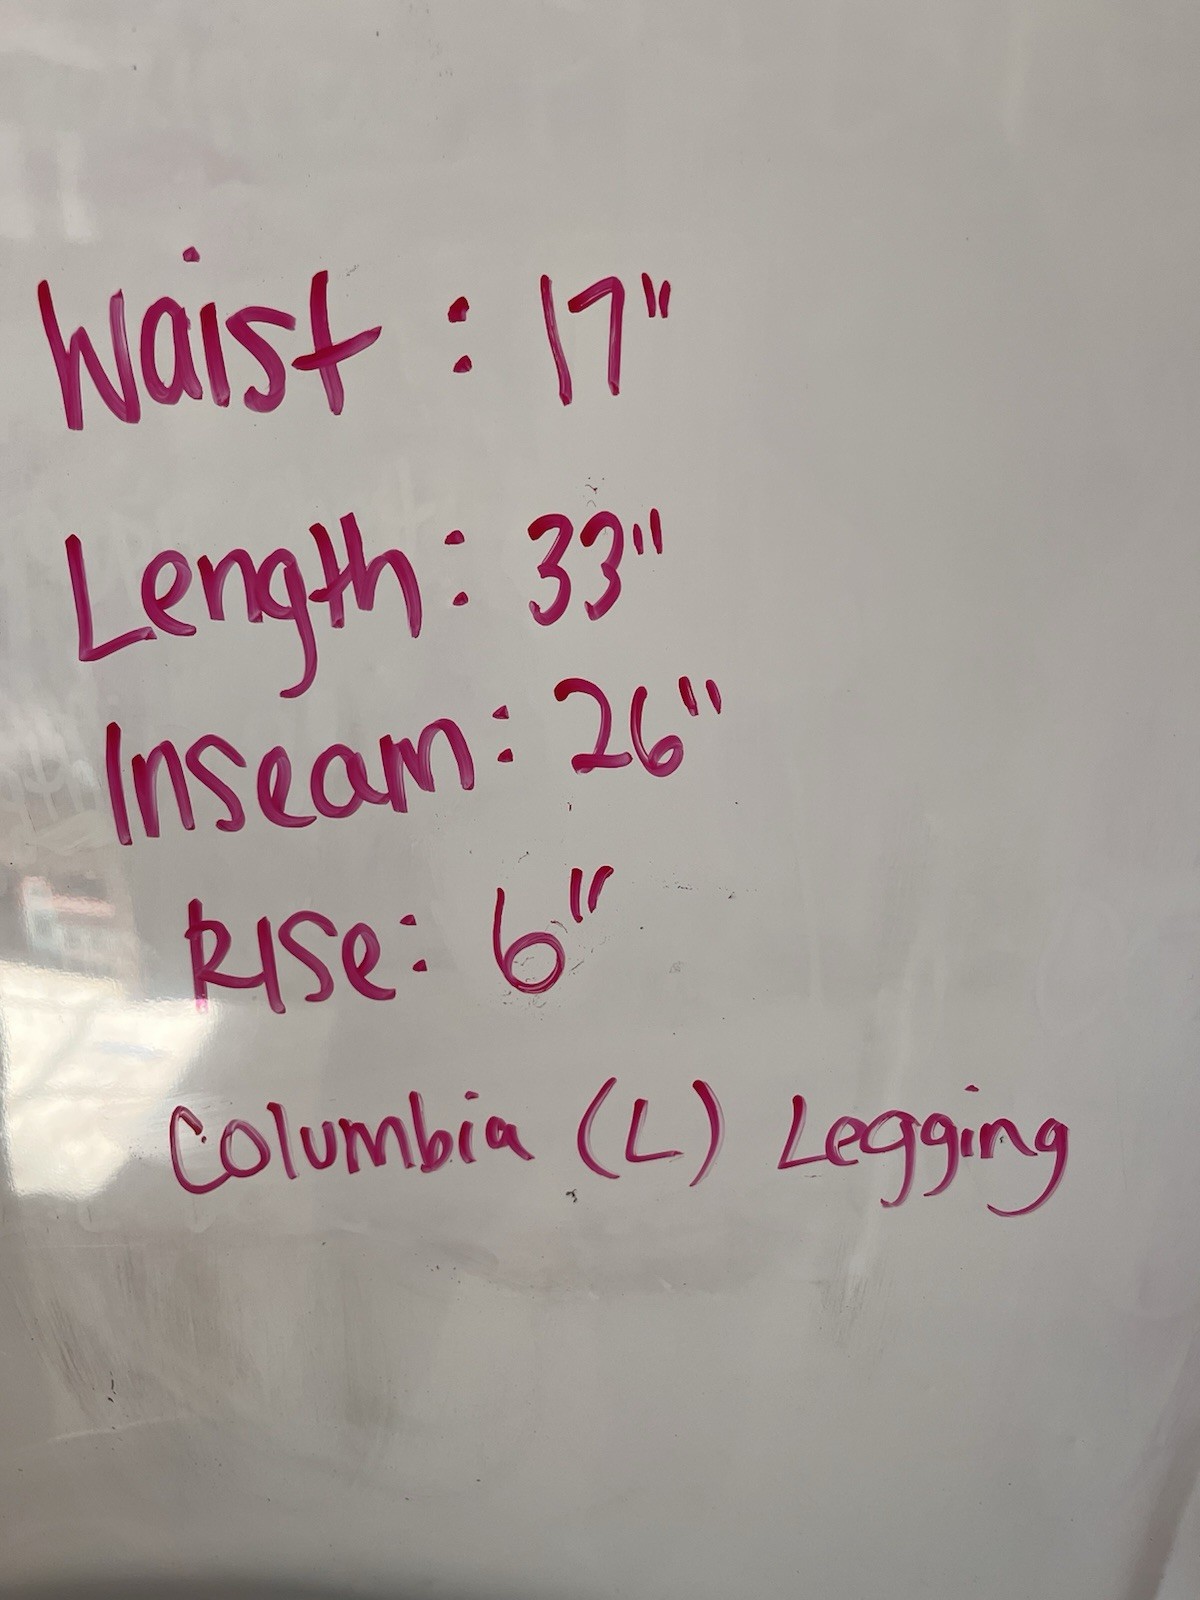 Waist : 17"
Length: 33"
Inseam: 26"
Rise: 6"
Columbia (L) Legging